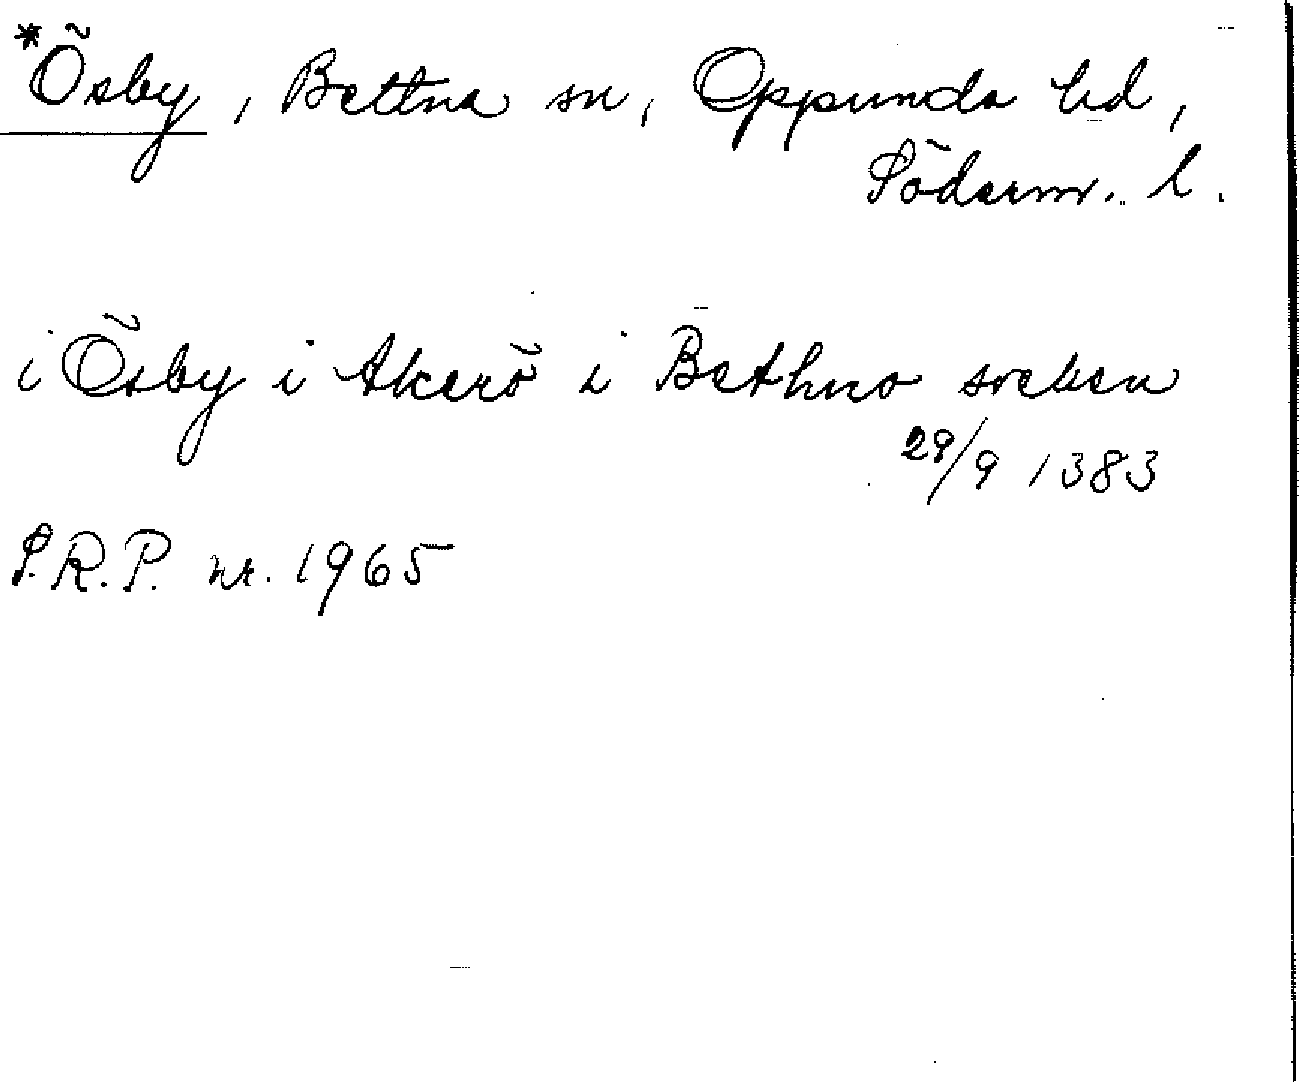 *Ösby, Bettna sn, Oppunda hd,
Söderm. l.
i Ösby i Akerö i Bethno soken
29/9 1383
S.R.P. nr. 1965